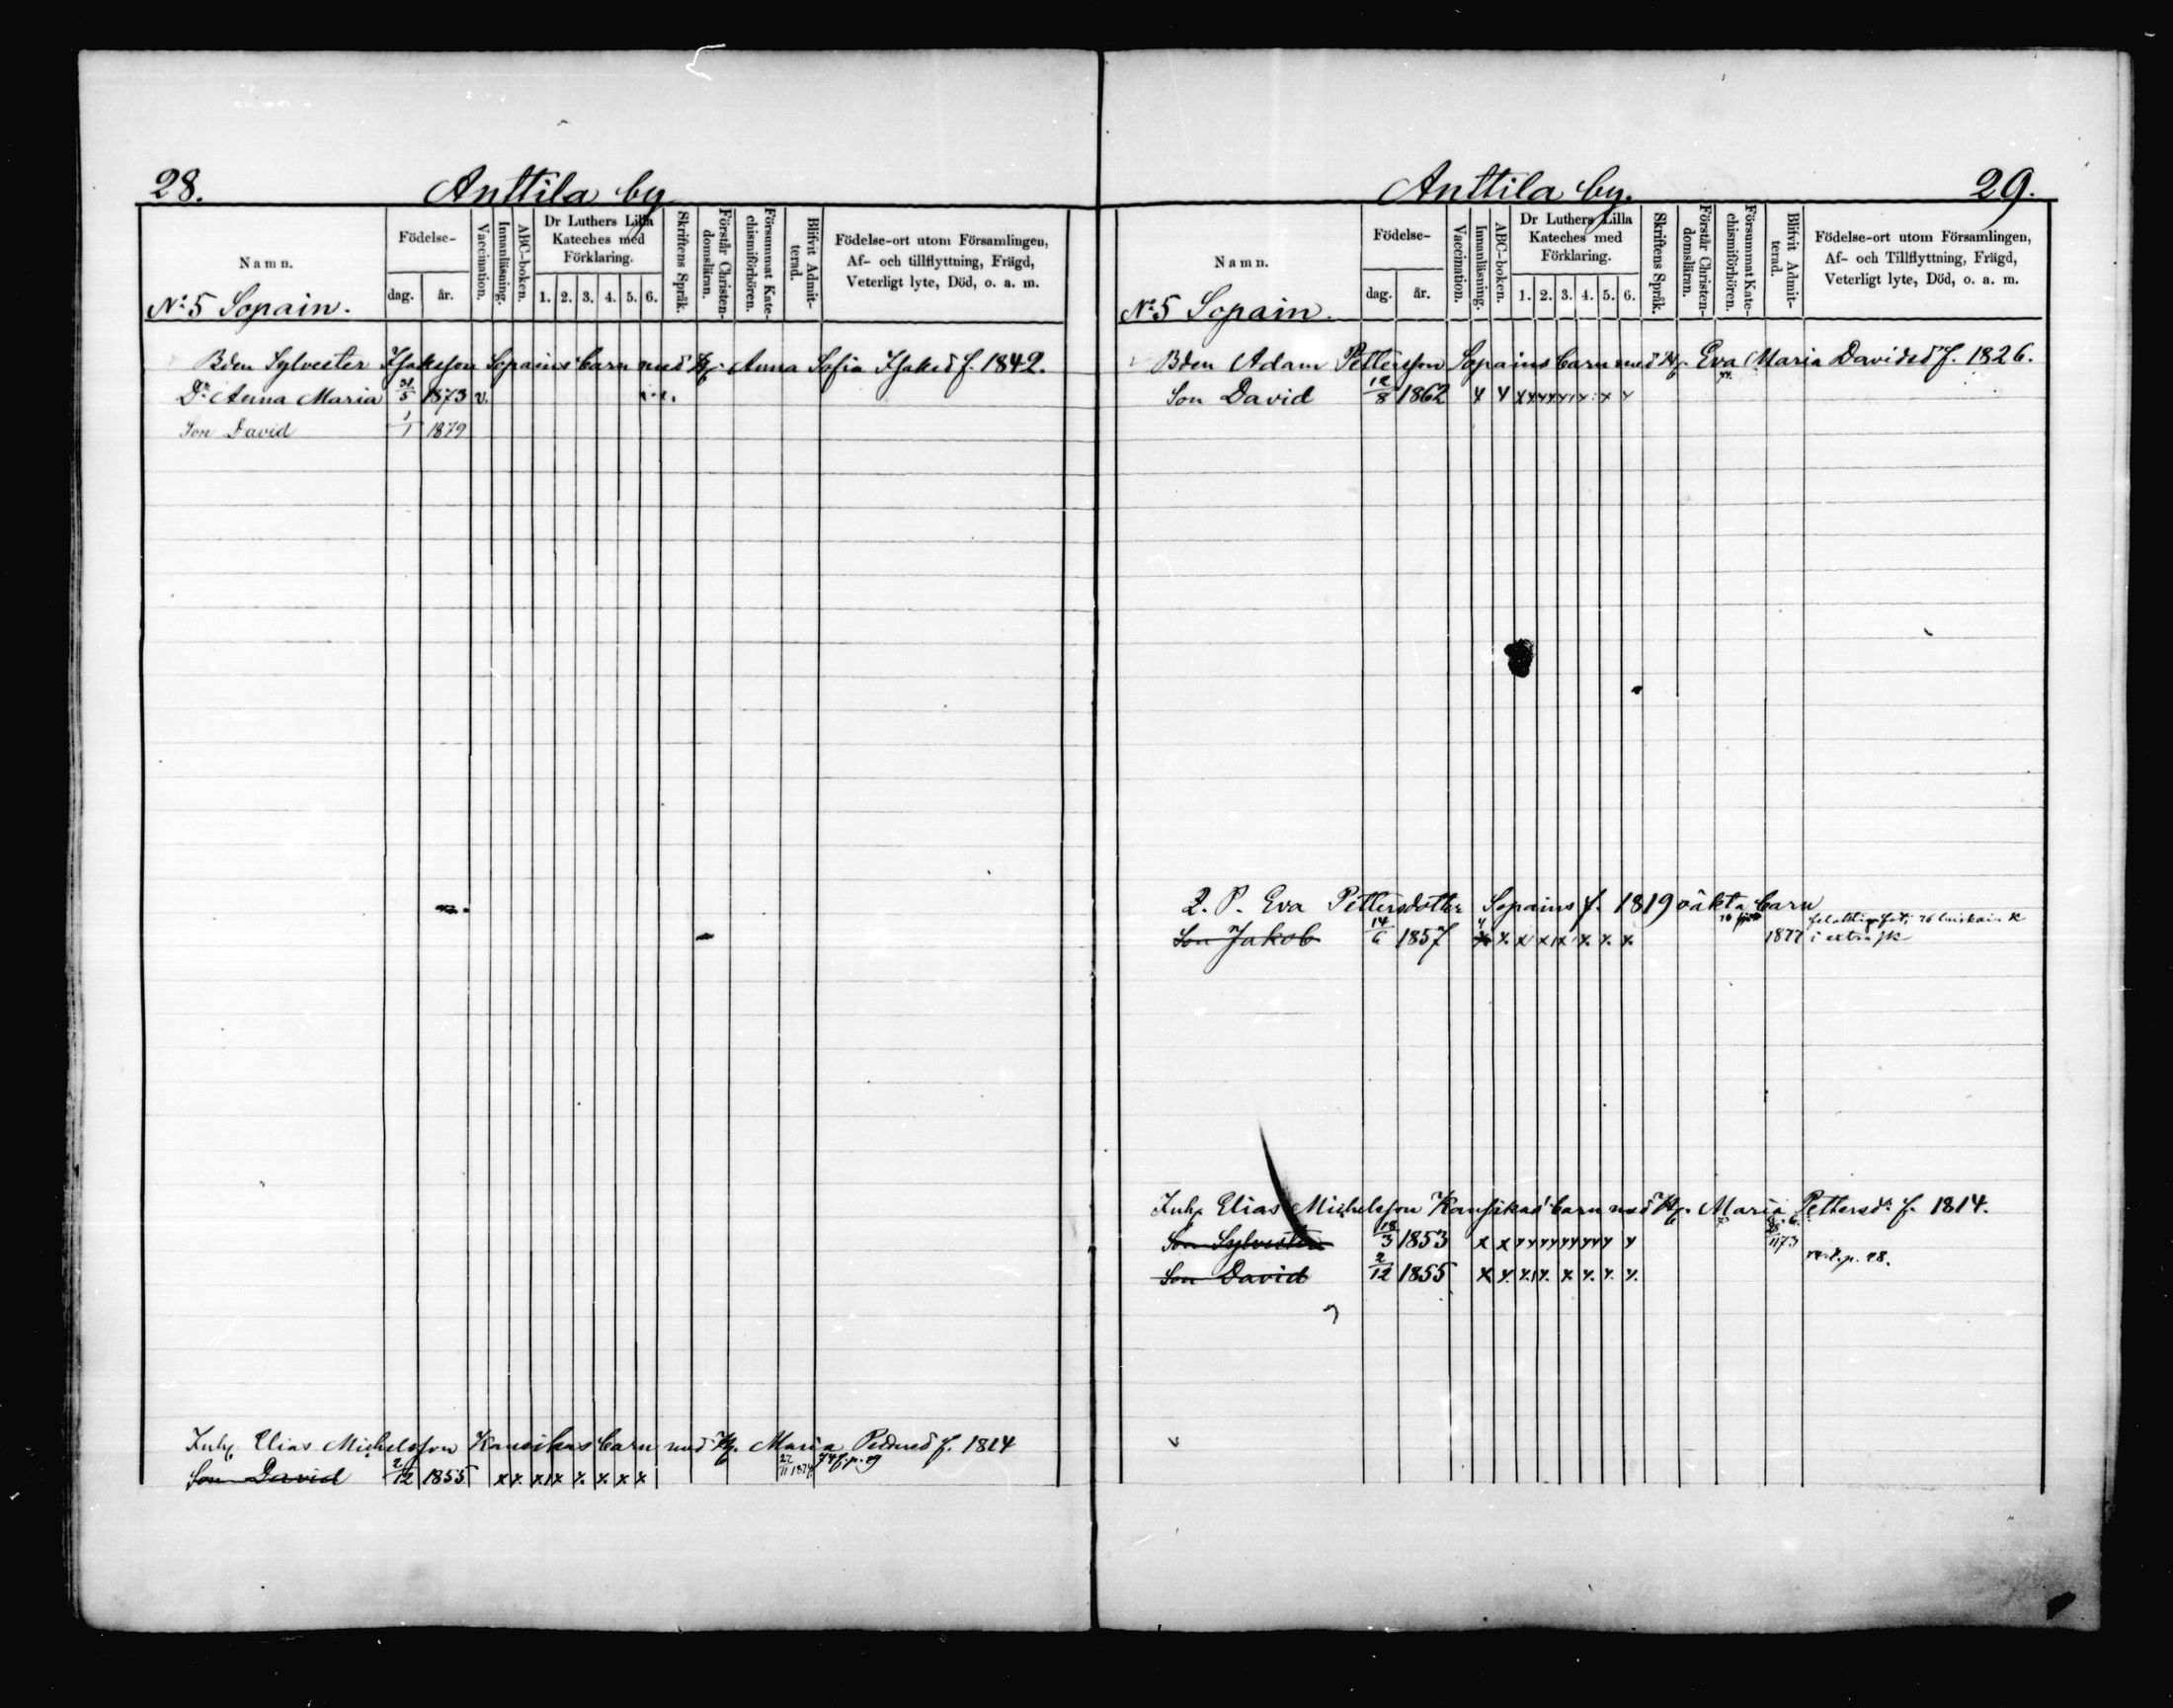 28.
Anttila by
Namn.
Födelse-
dag.
år.
Vaccination.
Innanläsning.
ABC-boken.
Dr Luthers Lilla
Kateches med
Förklaring.
1. 2. 3. 4. 5. 6.
Skriftens Språk.
Förstår Christen-
domsläran.
Försummat Kate-
chismiförhören.
Blifvit Admit-
terad.
Födelse-ort utom Församlingen,
Af- och tillflyttning, Frägd,
Veterligt lyte, Död, o. a. m.
No 5 Sopain.
Bden Sylvester Isaksson Sopains barn med Hu. Anna Sofia Isaksd f. 1842.
Dr Anna Maria 5 1873 v.
Son David 1/1 1879
Inh. Elias Michelsson Kansikas barn med Hu. Maria f. 1814
Son David 2/12 1855 x x x x x x x x
29.
Anttila by.
Namn.
Födelse-
dag.
år.
Vaccination.
Innanläsning.
ABC-boken.
Dr Luthers Lilla
Kateches med
Förklaring.
1. 2. 3. 4. 5. 6.
Skriftens Språk.
Förstår Christen-
domsläran.
Försummat Kate-
chismiförhören.
Blifvit Admit-
terad.
Födelse-ort utom Församlingen,
Af- och Tillflyttning, Frägd,
Veterligt lyte, Död, o. a. m.
No 5 Sopain.
Bden Adam Pettersson Sopains barn med Hu. Eva Maria Davidsd f. 1826.
Son David 12/8 1862
2. P. Eva Pettersdotter Sopains f. 1819 oäkta barn
Son Jakob 14/6 1857 1877 i extra
Inh. Elias Michelsson Kansikas barn med Hu. Maria Pettersd. f. 1814.
Son Sylvester 18/3 1853
Son David 2/12 1855 p. 28.